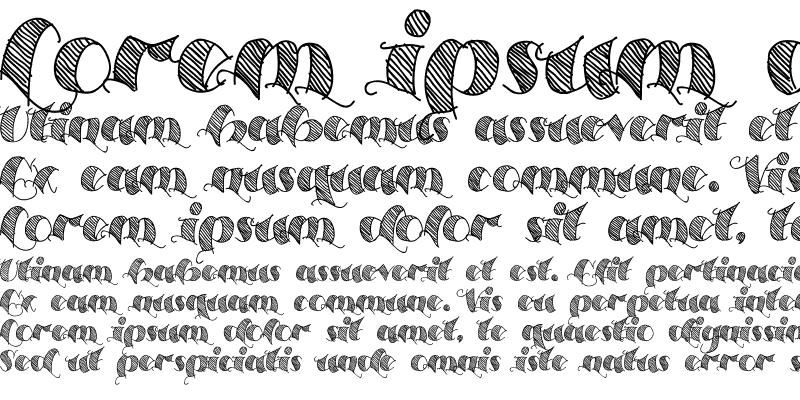 Lorem ipsum
Utinam habemus assueverit et
Ex eam nusquam commune. Vis
Lorem ipsum dolor sit amet, te
Utinam habemus assueverit et est. Elit
Ex eam nusquam commune. Vis eu perpetua
Lorem ipsum dolor sit amet, te quaestio
Sed ut perspiciatis unde omnis iste natus error